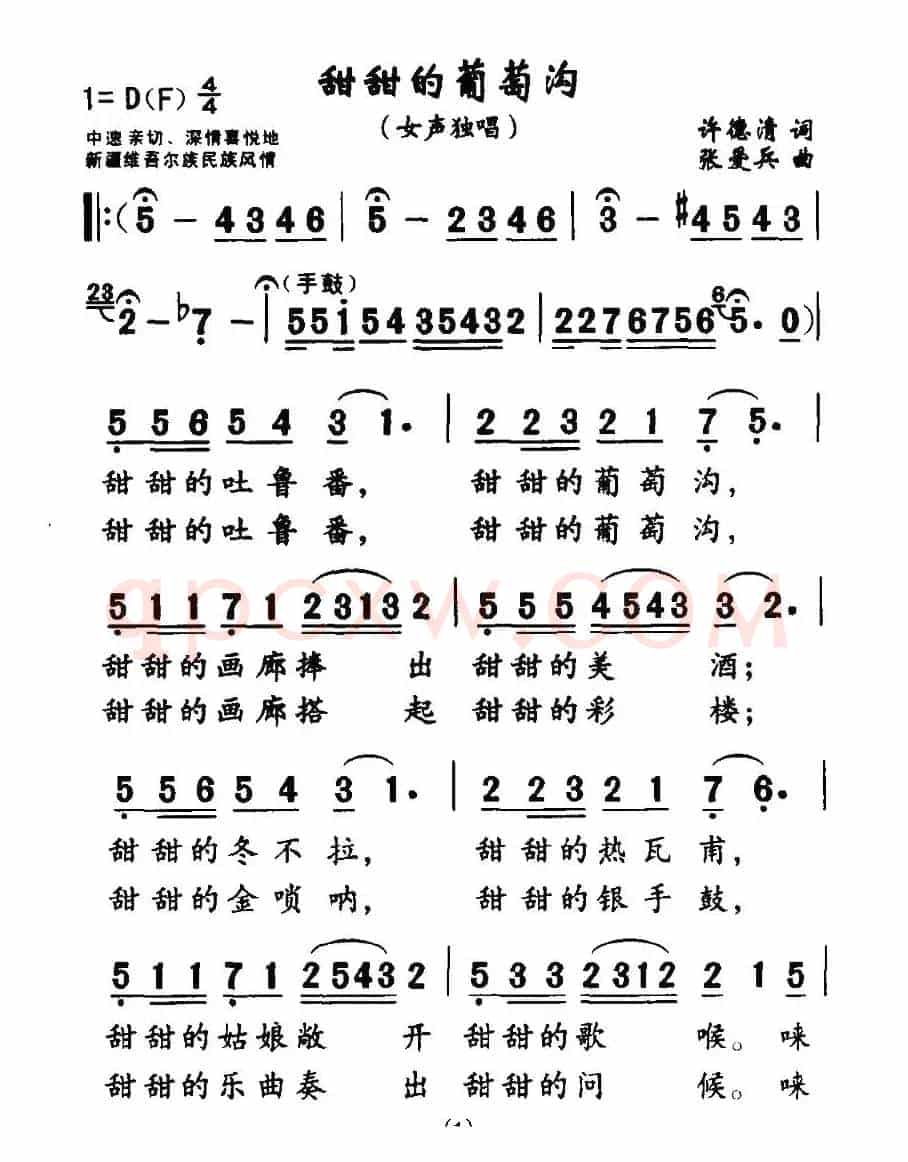 甜甜的葡萄沟
1= D(F) 4/4
(女声独唱)
中速 亲切、深情喜悦地
许德清 词
新疆维吾尔族民族风情
张爱兵 曲
‖:(5 - 4346 | 5 - 2346 | 3 - #4543 |
23 2 - b7 - | (手鼓) 5515435432 | 2276756 6 5. 0)|
5 56 54 3 1. | 2 23 21 7 5. |
甜 甜的吐鲁番, 甜 甜的葡萄 沟,
甜 甜的吐鲁番, 甜 甜的葡萄 沟,
5 11 71 23132 | 5 55 4543 3 2. |
甜甜的画廊捧 出 甜甜的美 酒;
甜甜的画廊搭 起 甜甜的彩 楼;
qpcxw.com
5 56 54 3 1. | 2 23 21 7 6. |
甜 甜的冬不拉, 甜 甜的热瓦 甫,
甜 甜的金唢呐, 甜 甜的银手 鼓,
5 11 71 25432 | 5 33 2312 2 1 5 |
甜甜的姑娘敞 开 甜甜的歌 喉。唻
甜甜的乐曲奏 出 甜甜的问 候。唻
(1)